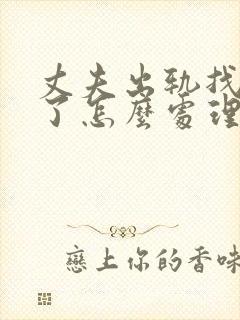 丈夫出轨找
了怎麼處理
戀上你的香味